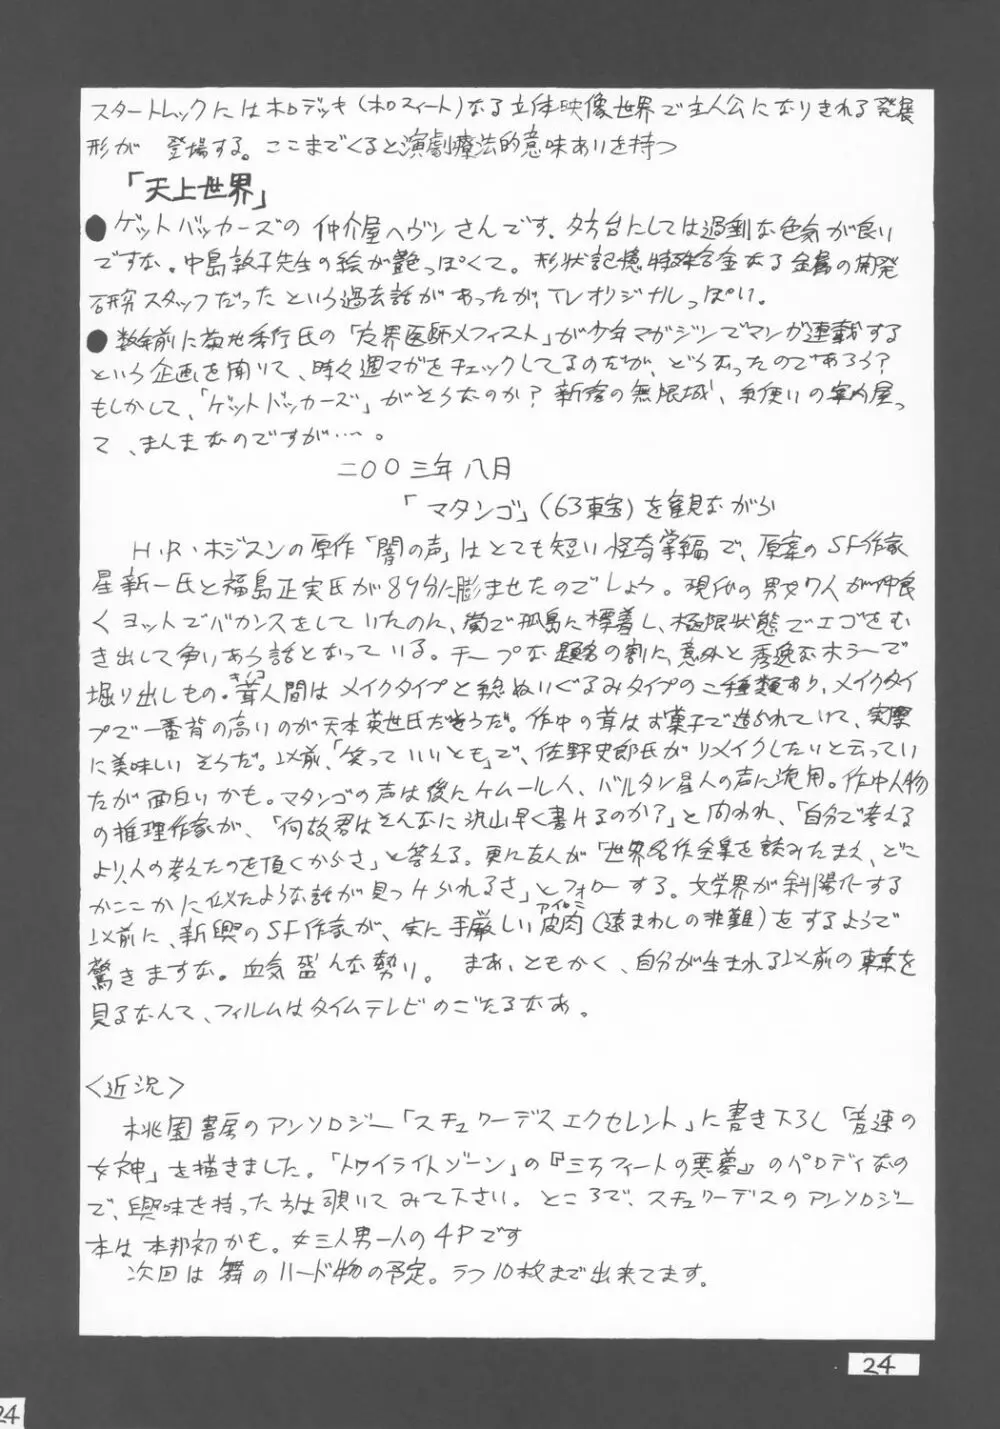 スタートレックにはホロデッキ(ホロスイート)なる立体映像世界で主人公になりきれる発展
形が 登場する。ここまでくると演劇療法的意味あいを持つ
「天上世界」
●ゲットバッカーズの 仲介屋ヘヴンさんです。夕方台にしては過剰な色気が良い
ですな。中島敦子先生の絵が艶っぽくて。形状記憶特殊合金なる金属の開発
研究スタッフだったという過去話があったが、TVオリジナルっぽい。
●数年前に菊地秀行氏の「魔界医師メフィスト」が少年マガジンでマンガ連載する
という企画を聞いて、時々週マガをチェックしてるのだが、どうなったのであろう?
もしかして、「ゲットバッカーズ」がそうなのか?新宿の無限城、糸使いの案内屋っ
て、まんまなのですが…。
二〇〇三年 八月
「マタンゴ」(63東宝)を観ながら
H・R・ホジスンの原作「闇の声」はとても短い怪奇掌編で、原案のSF作家
星新一氏と福島正実氏が89分に膨ませたのでしょう。現代の男女7人が仲良
くヨットでバカンスをしていたのに、嵐で孤島に標着し、極限状態でエゴをむ
き出して争いあう話となっている。チープな題名の割に、意外と秀逸なホラーで
掘り出しもの。茸人間はメイクタイプと総ぬいぐるみタイプの二種類あり、メイクタイ
キノコ
プで一番背の高いのが天本英世氏だそうだ。作中の茸はお菓子で造られていて、実際
に美味しいそうだ。以前、「笑っていいとも」で、佐野史郎氏がリメイクしたいと云ってい
たが面白いかも。マタンゴの声は後にケムール人、バルタン星人の声に流用。作中人物
の推理作家が、「何故君はそんなに沢山早く書けるのか?」と問われ、「自分で考える
より、人の考えたのを頂くからさ」と答える。更に友人が「世界名作全集を読みたまえ、どこ
かここかに似たような話が見つけられるさ」とフォローする。文学界が斜陽化する
以前に、新興のSF作家が、実に手厳しい皮肉(遠まわしの非難)をするようで
アイロニー
驚きますな。血気盛んな勢い。 まあ、ともかく、自分が生まれる以前の東京を
見るなんて、フィルムはタイムテレビのごたるなあ。
〈近況〉
桃園書房のアンソロジー「スチュワーデスエクセレント」に書き下ろし「音速の
女神」を描きました。「トワイライトゾーン」の『三万フィートの悪夢』のパロディなの
で、興味を持った方は覗いてみて下さい。ところで、スチュワーデスのアンソロジー
本は本邦初かも。女三人男一人の4Pです
次回は舞のハード物の予定。ラフ10枚まで出来てます。
24
24